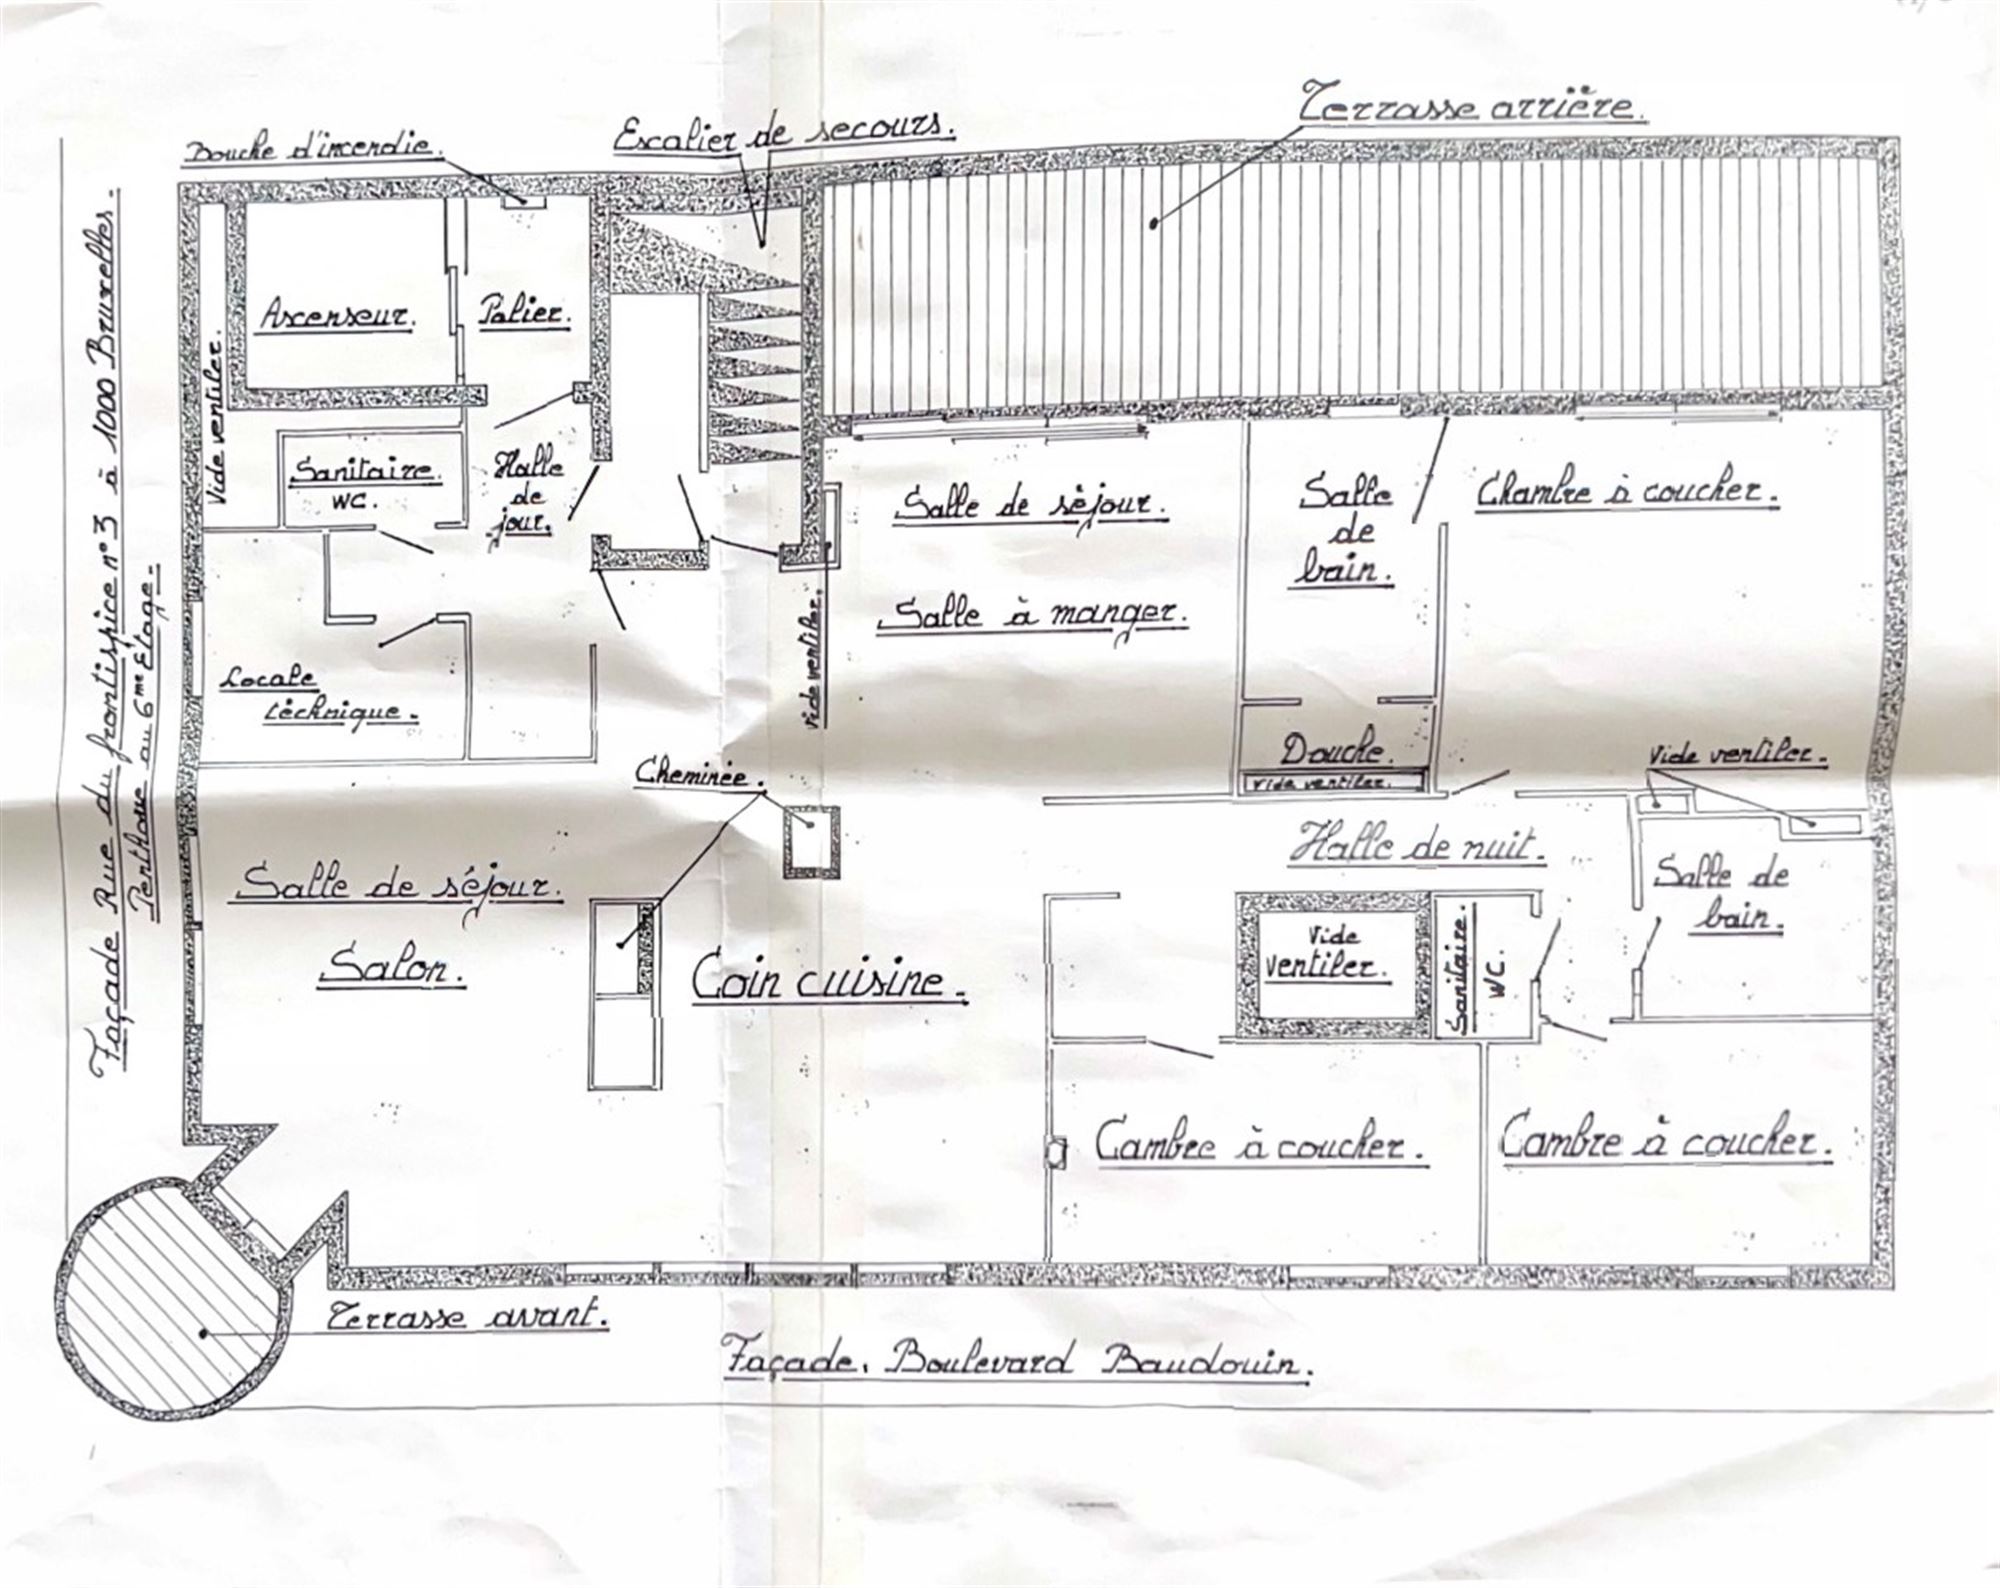 Terrasse arrière.
Escalier de secours.
Bouche d'incendie.
Façade Rue du frontispice n°3 à 1000 Bruxelles.
Penthouse au 6me Etage.
Ascenseur.
Palier.
Vide ventiler.
Sanitaire
WC.
Halle
de
jour.
Salle de séjour.
Salle à manger.
Salle
de
bain.
Chambre à coucher.
Vide ventiler.
Locale
téchnique.
Cheminée.
Douche.
Vide ventiler.
Vide ventiler.
Halle de nuit.
Salle de séjour.
Salon.
Coin cuisine.
Vide
ventiler.
Sanitaire.
WC.
Salle de
bain.
Cambre à coucher.
Cambre à coucher.
Terrasse avant.
Façade. Boulevard Baudouin.